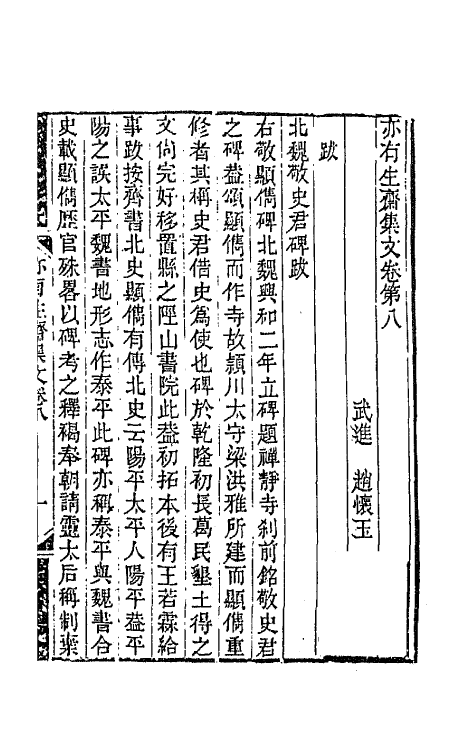 亦有生齋集文卷第八
武進　趙懷玉
跋
北魏敬史君碑跋
右敬顯儁碑北魏興和二年立碑題禪靜寺刹前銘敬史君
之碑葢頌顯儁而作寺故潁川太守梁洪雅所建而顯儁重
修者其稱史君借史為使也碑於乾隆初長葛民墾土得之
文尚完好移置縣之陘山書院此葢初拓本後有王若霖給
事跋按齊書北史顯儁有傳北史云陽平太平人陽平葢平
陽之誤太平魏書地形志作泰平此碑亦稱泰平與魏書合
史載顯儁歷官殊畧以碑考之釋褐奉朝請靈太后稱制棄
亦有生齋集文卷八
一